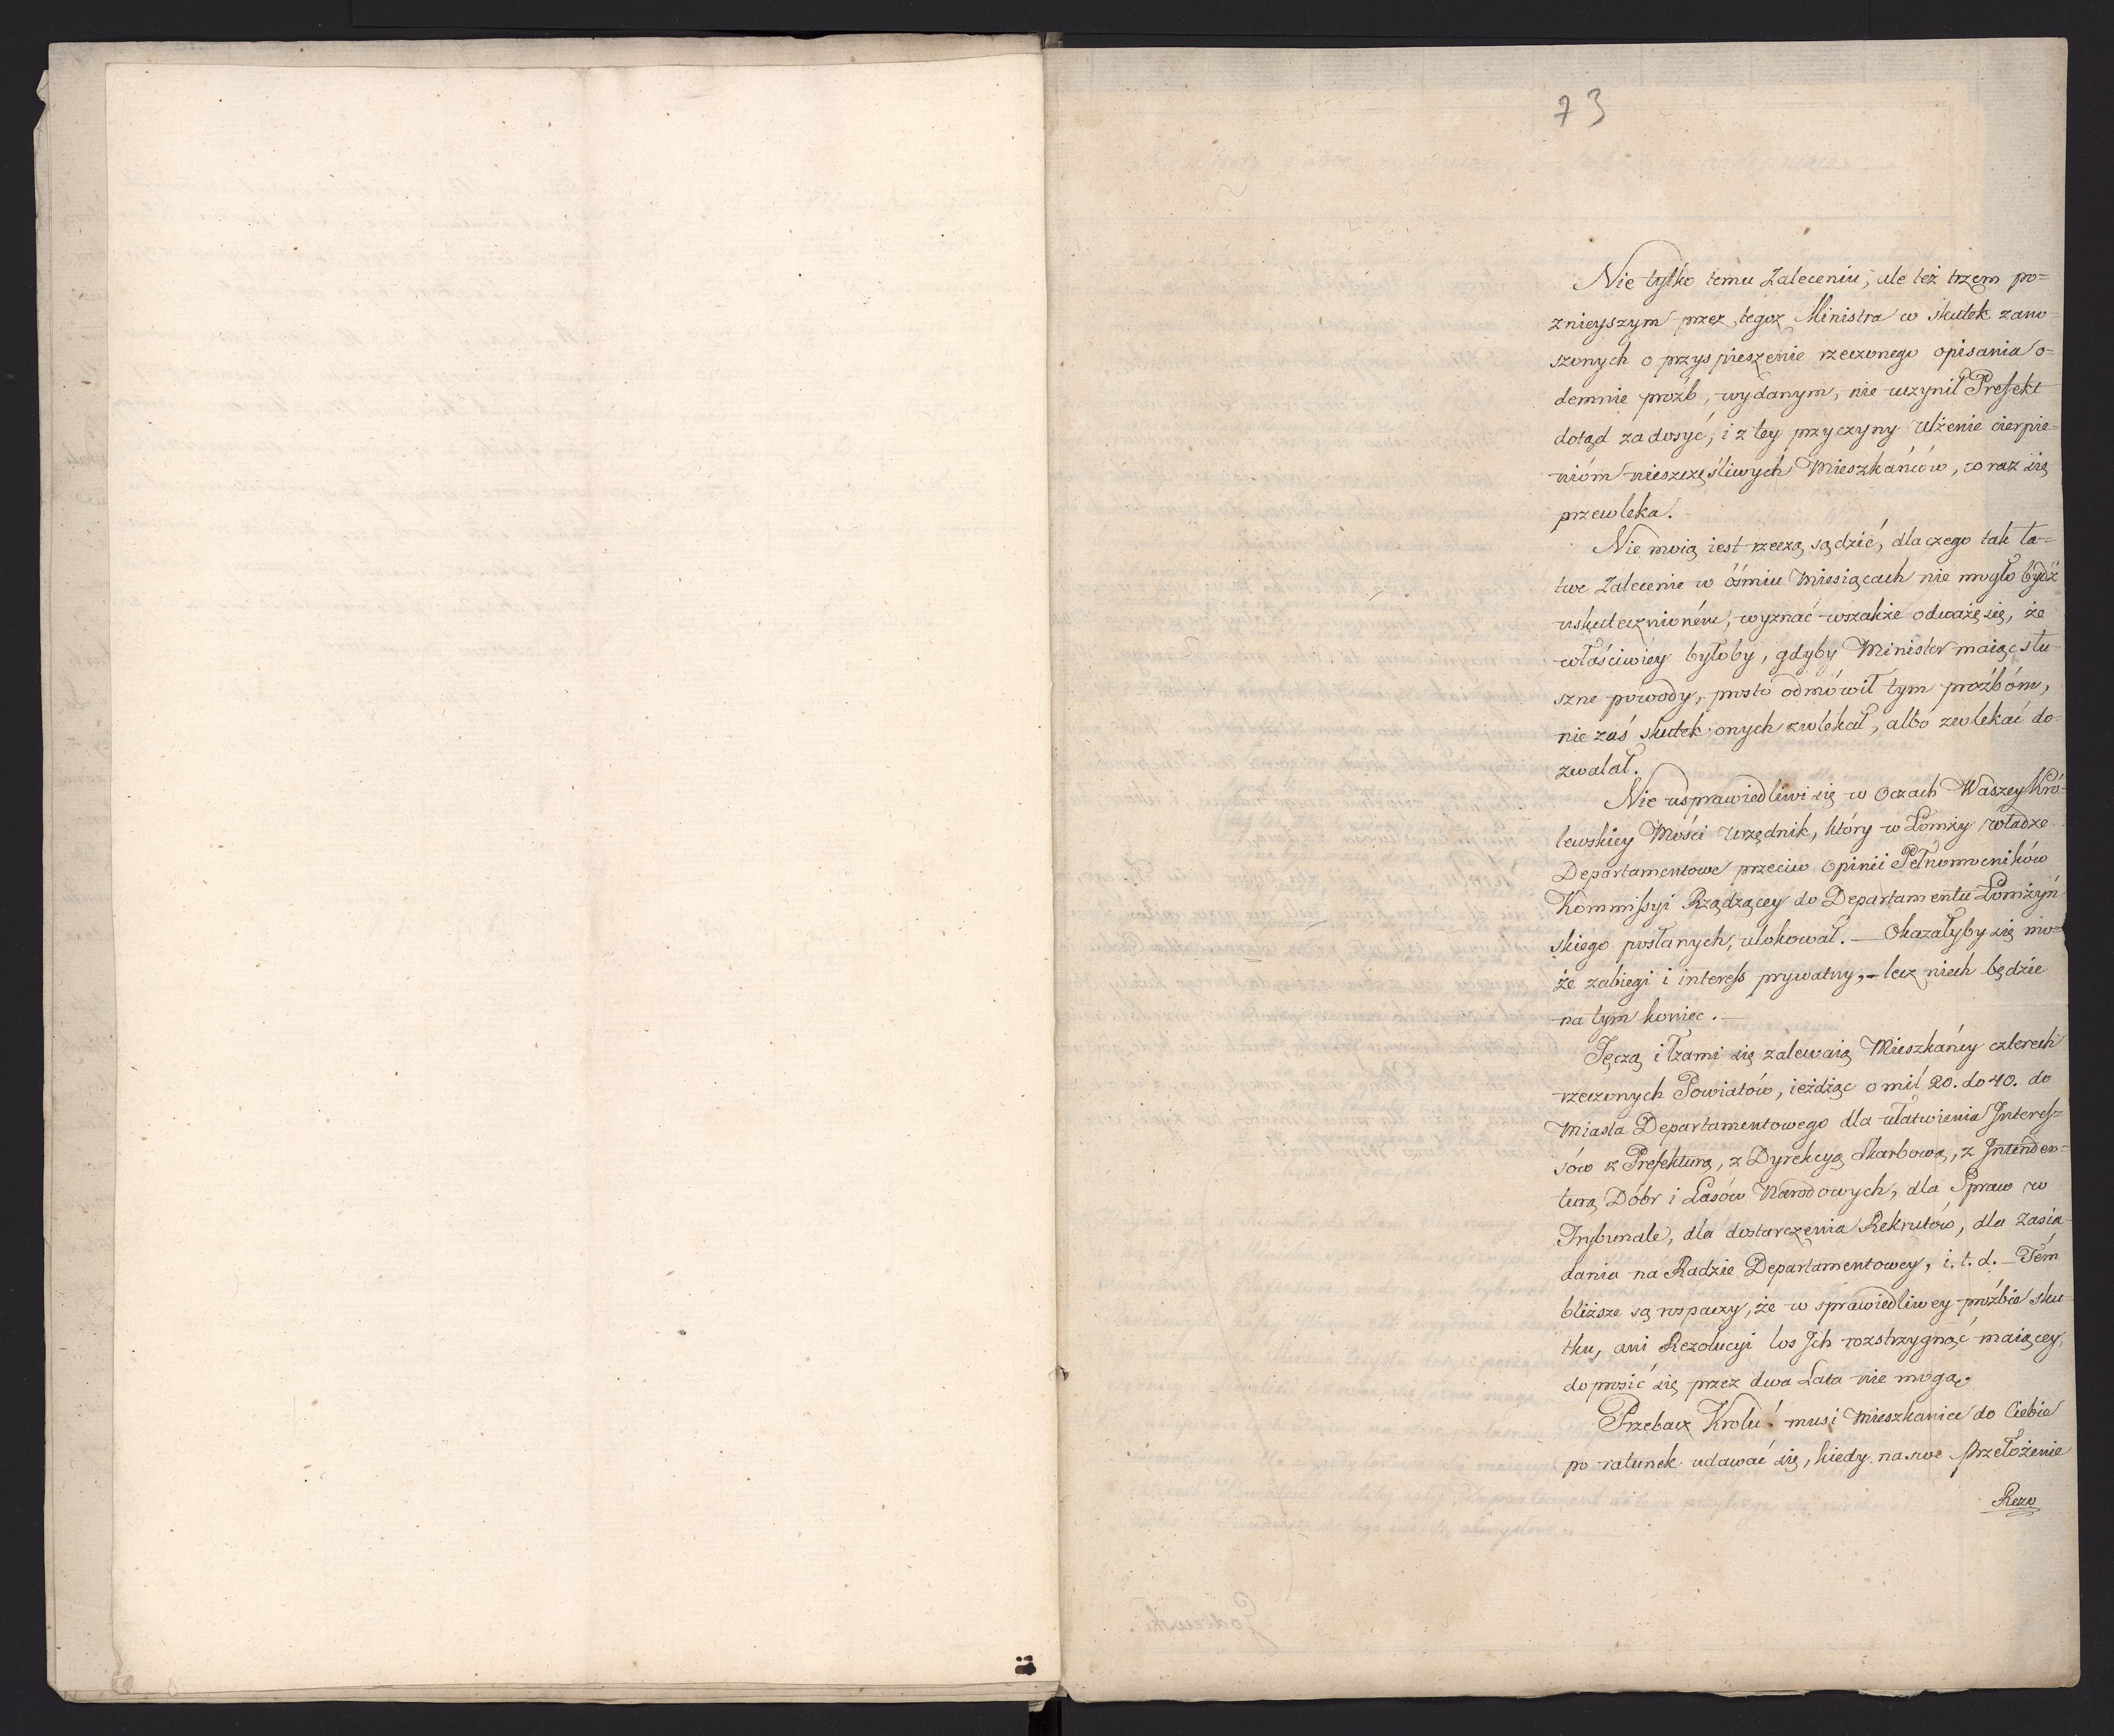 73
Nie tylko temu Zaleceniu, ale też trzem po=
znieyszym przez tegoż Ministra w skutek zano-
szonych o przyspieszenie rzeczonego opisania o=
demnie proźb, wydanym, nie uczynił Prefekt
dotąd zadosyć, i z tey przyczyny Ulżenie cierpie=
nióm nieszczęśliwych Mieszkańców, coraz się
przewleka.
Nie moią iest rzeczą sądzić, dlaczego tak ła=
twe Zalecenie w óśmiu Miesiącach nie mogło bydź
uskutecznioném, wyznać wszakże odważę się, że
właściwiéy byłoby, gdyby Minister maiąc słu-
szne powody, prosto odmówił tym proźbóm,
nie zaś skutek onych zwlekał, albo zwlekać do=
zwalał.
Nie usprawiedliwi się w Oczach Waszey Kró-
lewskiey Mości Urzędnik, który w Łomży władze
Departamentowe przeciw Opinii Pełnomocników
Kommissyi Rządzącey do Departamentu Łomżyń
skiego posłanych, ulokował. — Okazałyby się mo=
że zabiegi i interess prywatny, – lecz niech będzie
na tym koniec. —
Jęczą i łzami się zalewaią Mieszkańcy czterech
rzeczonych Powiatów, ieżdżąc o mil 20. do 40. do
Miasta Departamentowego dla ułatwienia Interes=
sów z Prefekturą, z Dyrekcyą Skarbową, z Intenden=
turą Dóbr i Lasów Narodowych, dla Spraw w
Trybunale, dla dostarczenia Rekrutów, dla Zasia-
dania na Radzie Departamentowey, i. t. d. — Tém
bliższe są rozpaczy, że w sprawiedliwey proźbie sku-
tku, ani Rezolucyi los Ich rozstrzygnąć maiącey,
doprosić się przez dwa Lata nie mogą.
Przebacz Krolu! musi Mieszkaniec do Ciebie
po ratunek udawać się, kiedy na swe Przełożenie
Rezo